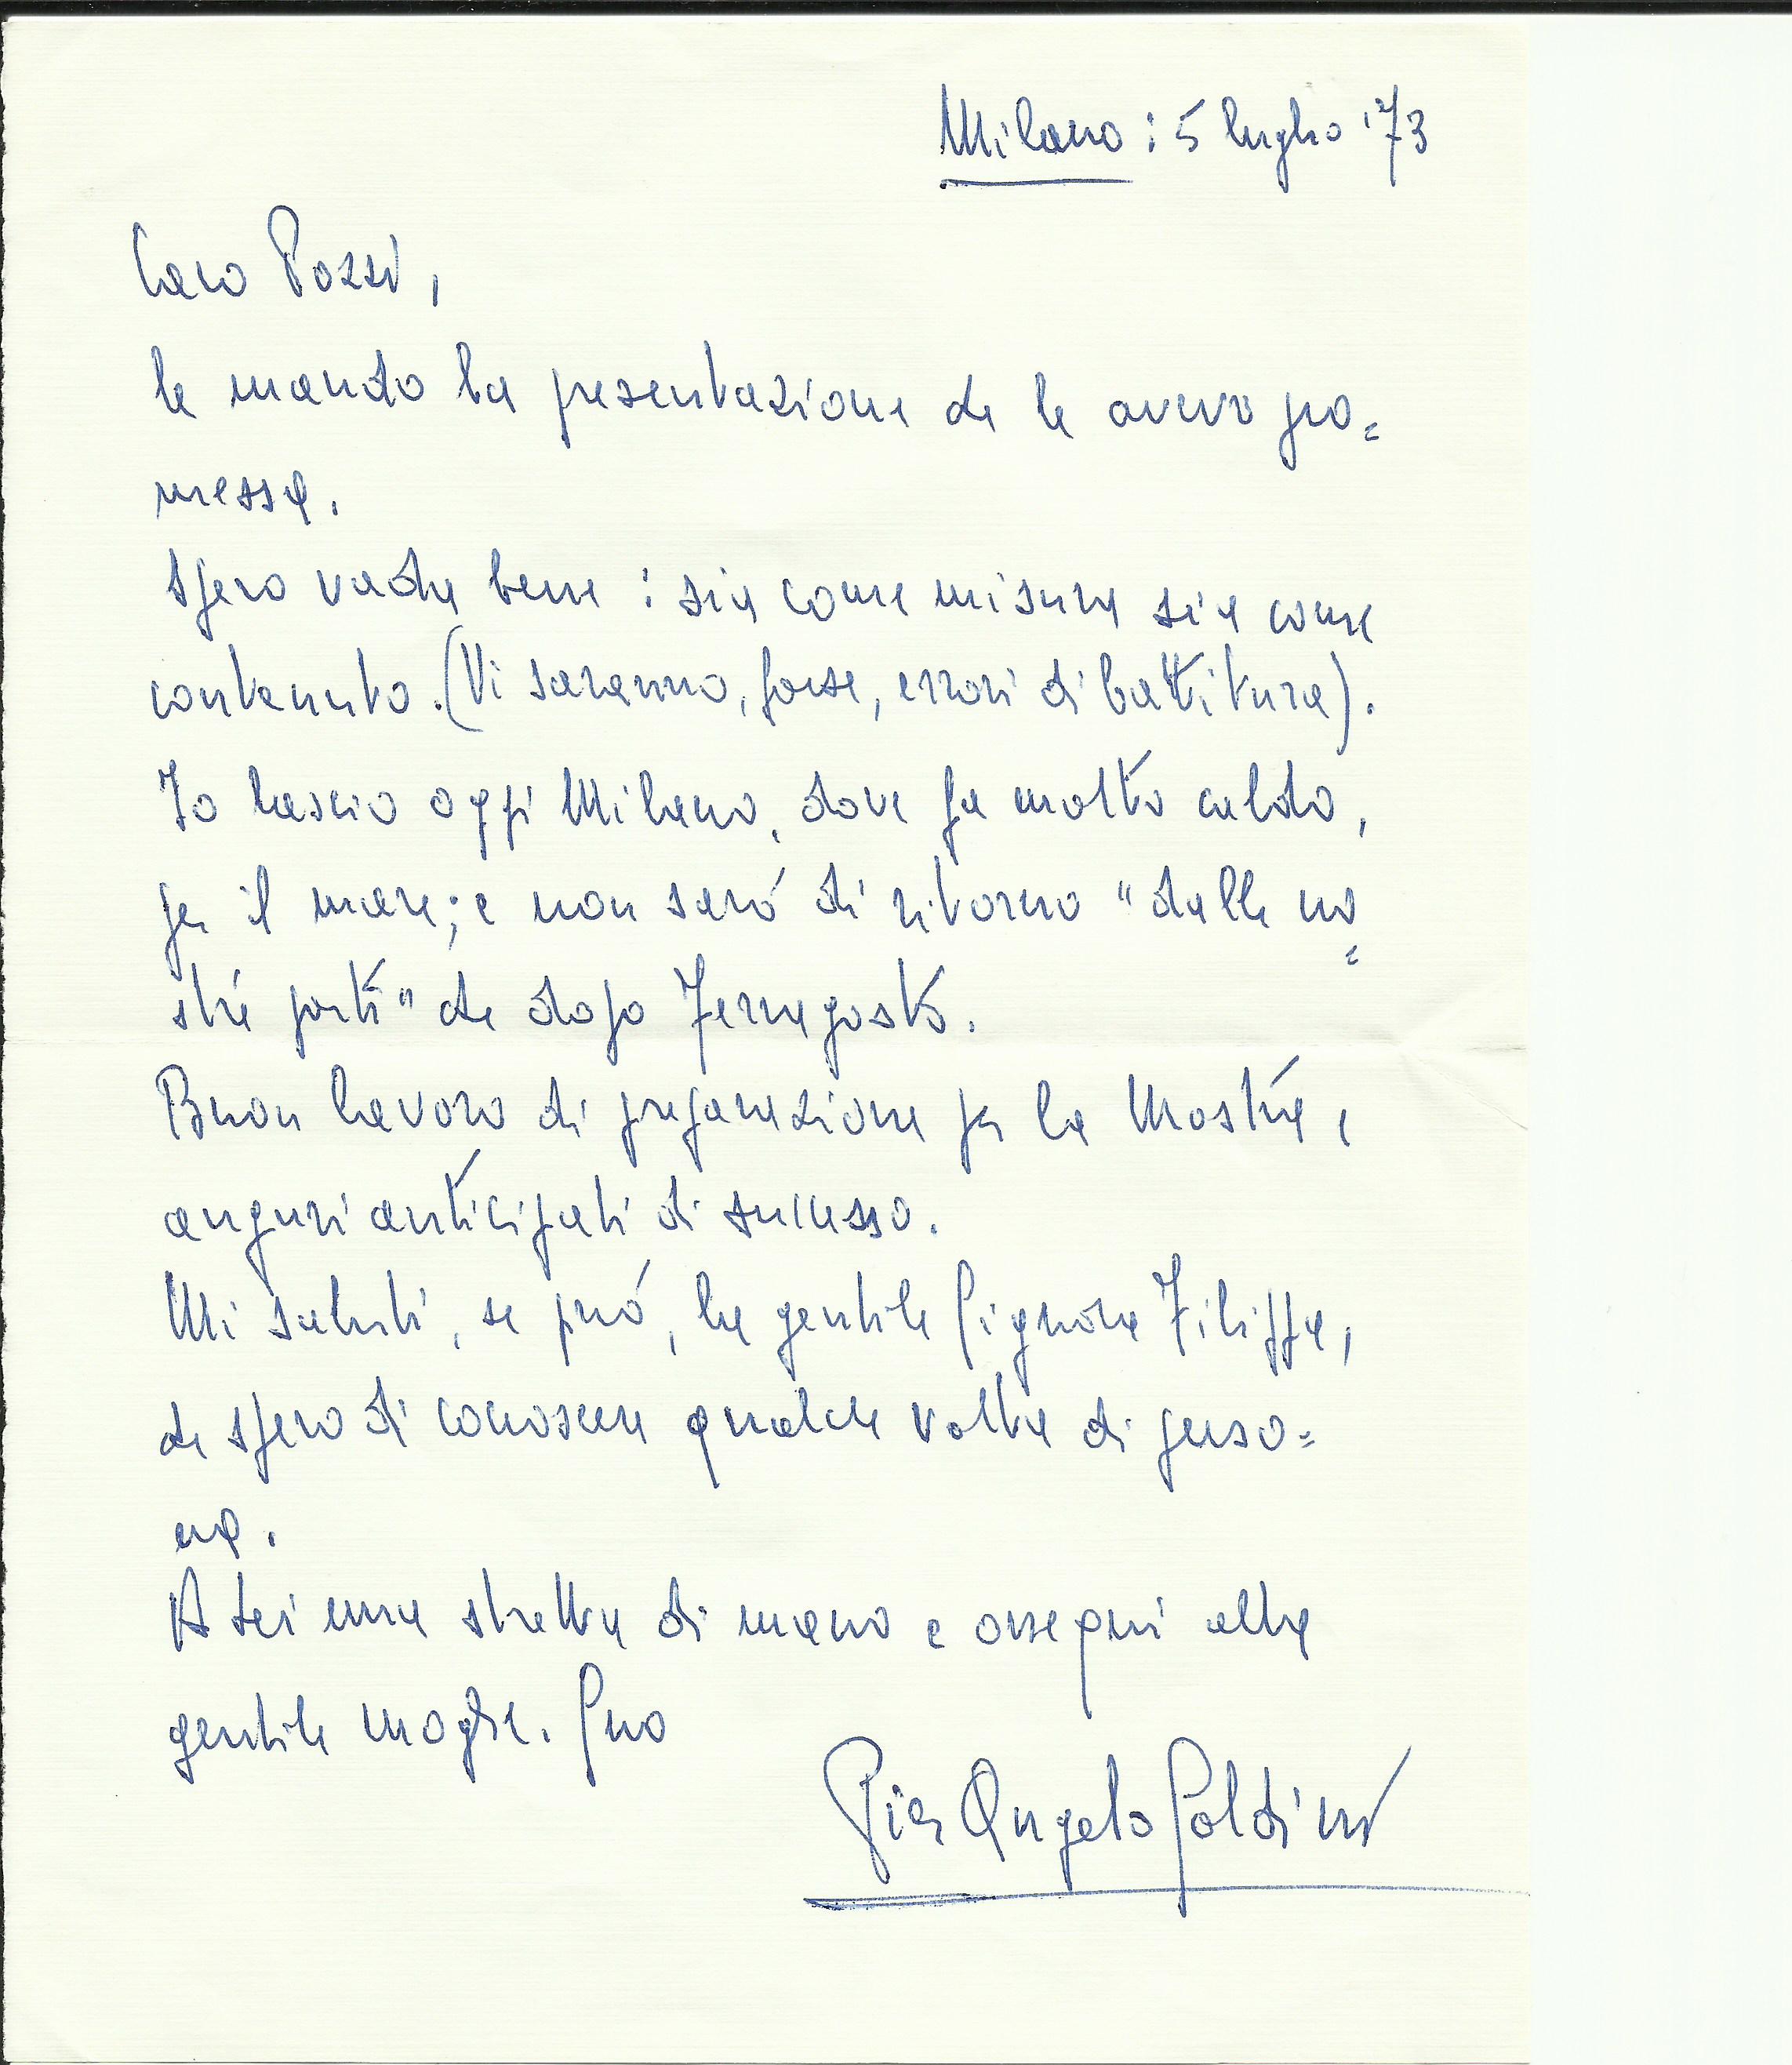 Milano : 5 luglio '73
Caro Pozzi,
le mando la presentazione che le avevo pro=
messa.
Spero vada bene : sia come misura sia come
contenuto. (Vi saranno, forse, errori di battitura).
Io lascio oggi Milano, dove fa molto caldo,
per il mare; e non sarò di ritorno "dalle no=
stre parti" che dopo Ferragosto.
Buon lavoro di preparazione per la Mostra e
auguri anticipati di successo.
Mi saluti, se può, la gentile Signora Filippa,
che spero di conoscere qualche volta di perso=
na.
A Lei una stretta di mano e ossequi alla
gentile moglie. Suo
Pier Angelo Soldini